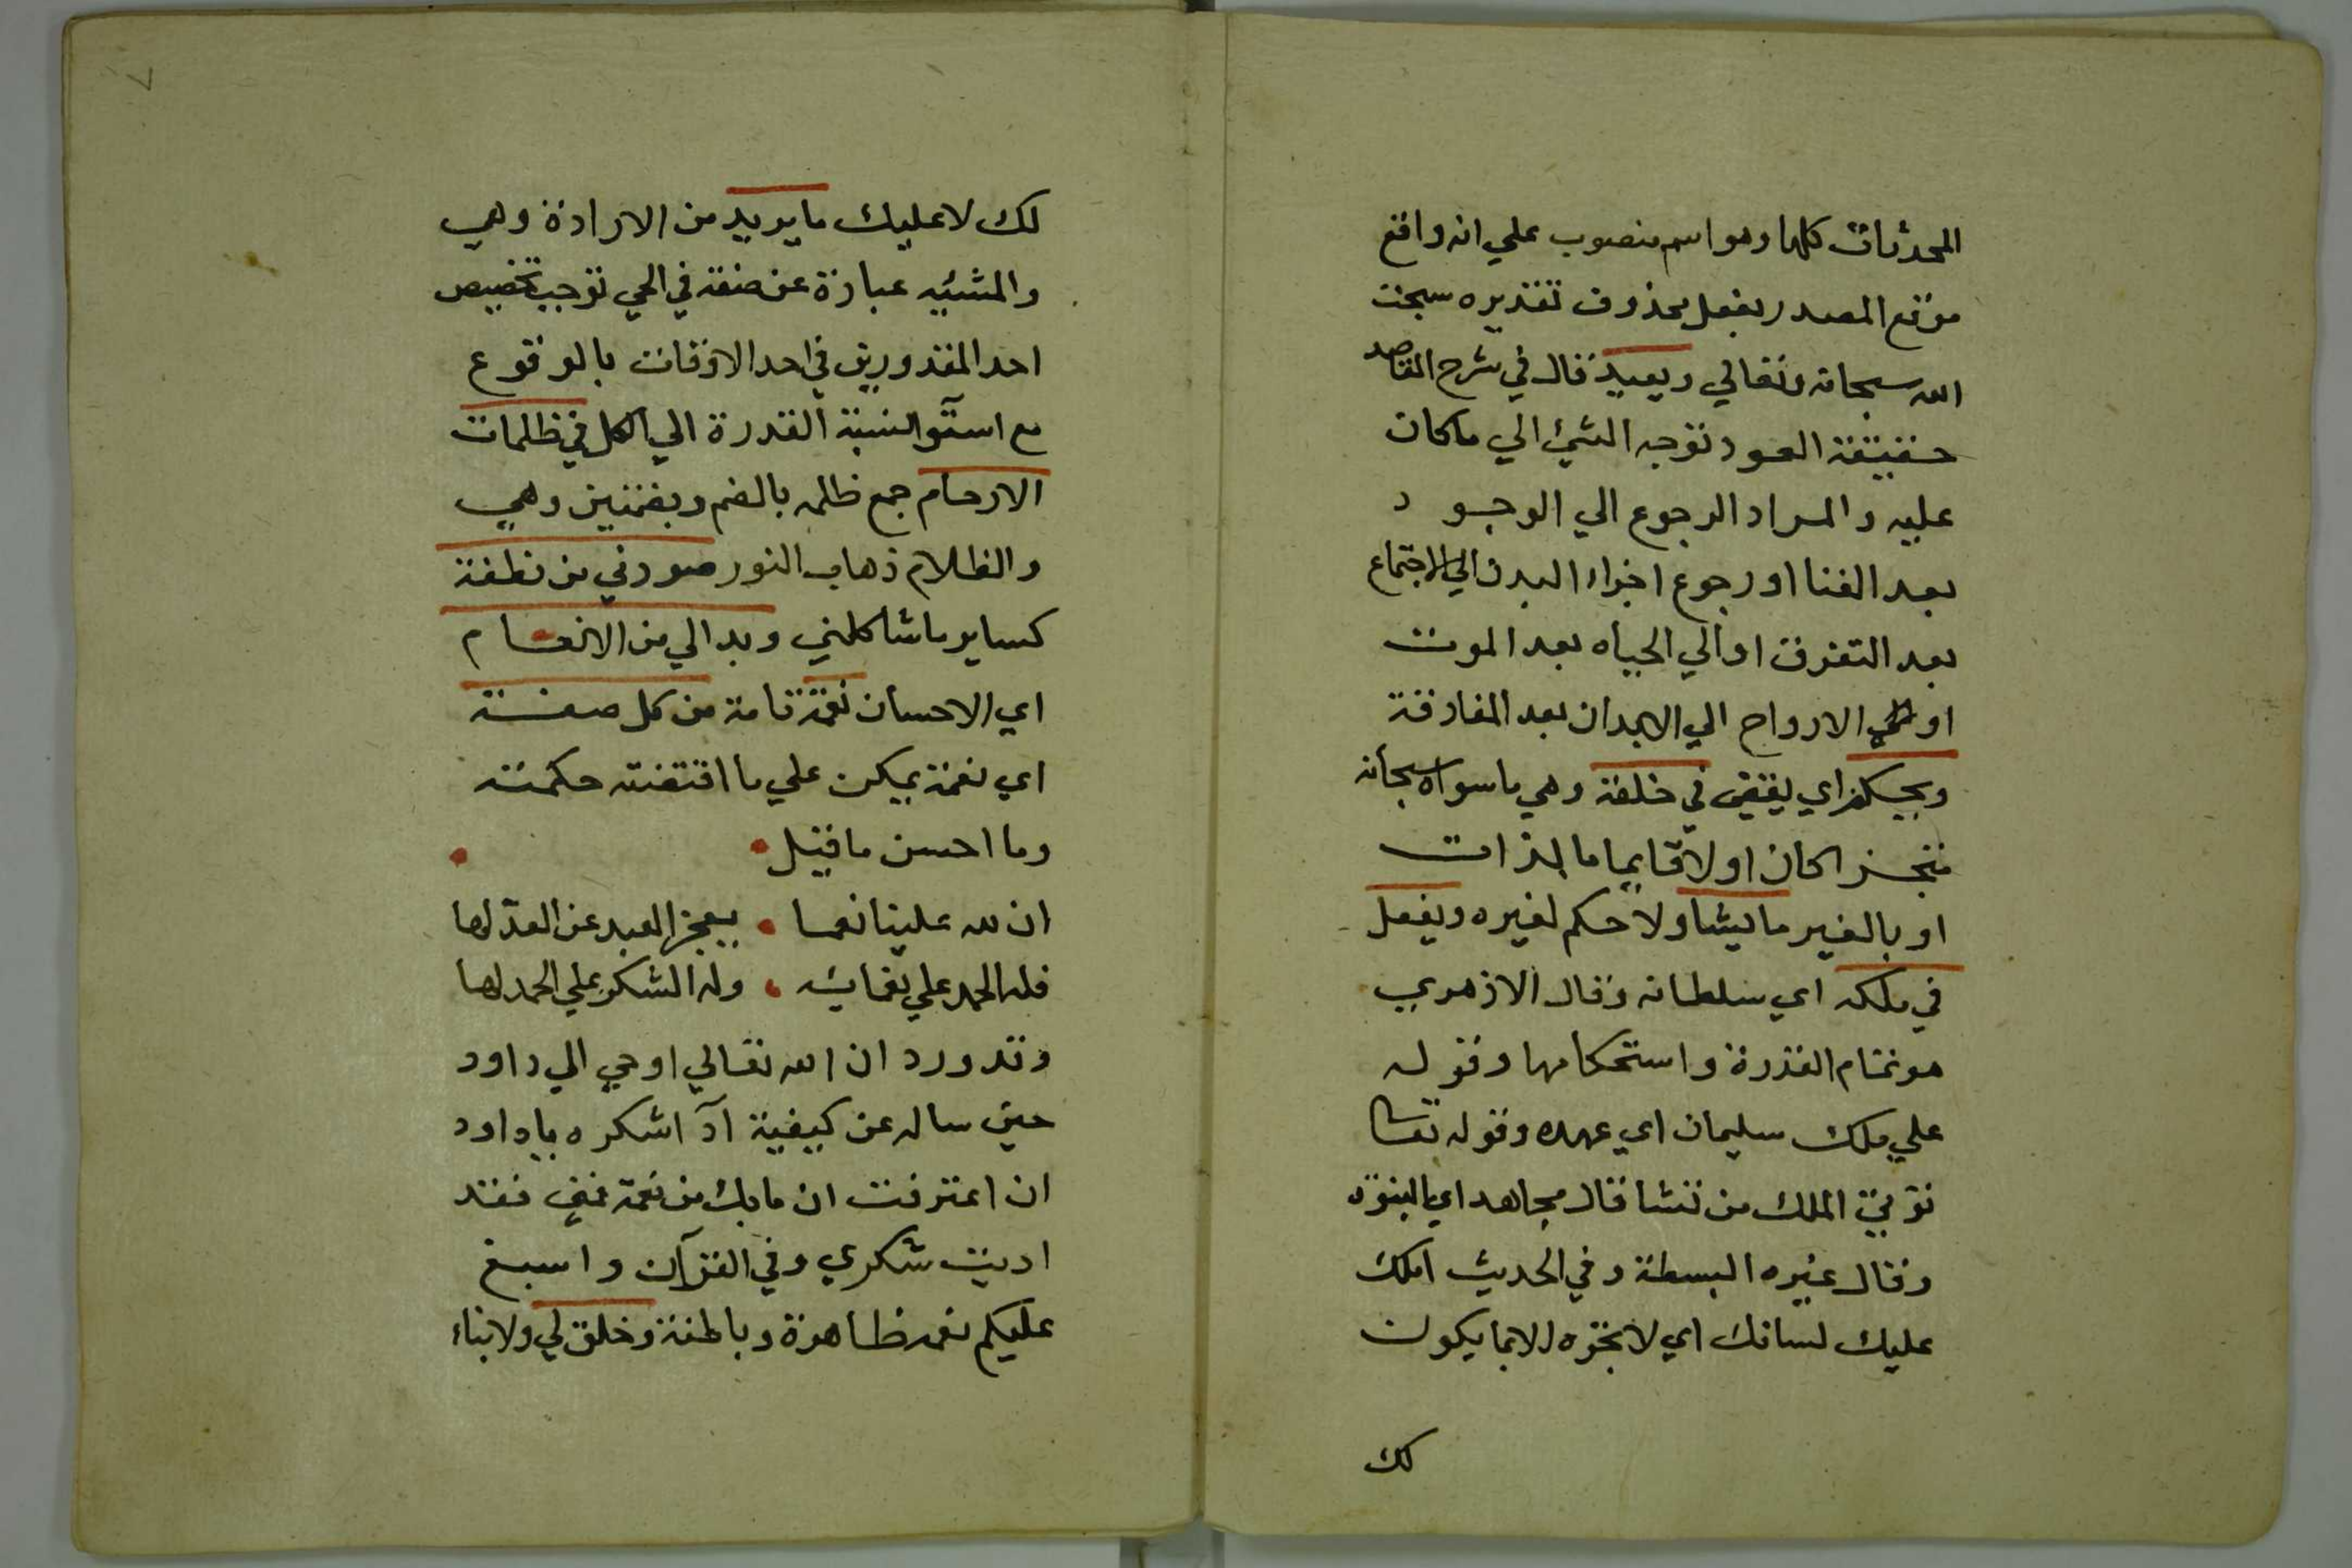 المحدثات كلها وهو اسم منصوب علي انه واقع
موقع المصدر بفعل محذوف تقديره سبحت
الله سبحانه وتعالي ويعيد قال في شرح المقاصد
حقيقة العود توجه الشيئ الي ما كان
عليه والمراد الرجوع الي الوجود
بعد الفنا او رجوع اجزاء البدن الي الاجتماع
بعد التفرق او الي الحياه بعد الموت
او الارواح الي الابدان بعد المفارقة
ويحكم اي يقضي في خلقه وهي ما سواه سبحانه
كان اولا قايما بالذات
او بالغير ما يشا ولا حكم لغيره ويفعل
في ملكه اي سلطانه وقال الازهري
هو تمام القدرة واستحكامها وقوله
علي ملك سليمان اي عهده وقوله تعا
توتي الملك من تشا قال مجاهد اي النبوة
وقال غيره البسطة وفي الحديث املك
عليك لسانك اي لا تجره الا بما يكون
لك
٧
لك لا عليك ما يريد من الارادة وهي
والمشئيه عبارة عن صفة في الحي توجب تخصيص
احد المقدورين في احد الاوقات بالوقوع
مع استوآ نسبة القدرة الي الكل في ظلمات
الارحام جمع ظلمه بالضم وبضمتين وهي
والظلام ذهاب النور صورني من نطفة
كساير ما شاكلني وبدا لي من الانعام
اي الاحسان نعمة تامة من كل صفة
اي نعمة يمكن علي ما اقتضته حكمته
وما احسن ما قيل
ان لله علينا نعما • يعجز العبد عن العد لها
فله الحمد علي نعمائه • وله الشكر علي الحمد لها
وقد ورد ان الله تعالي اوحي الي داود
حين ساله عن كيفية ادآ شكره ياداود
ان اعترفت ان ما بك من نعمة فمني فقد
اديت شكري وفي القرآن واسبغ
عليكم نعمه ظاهرة وباطنة وخلق لي ولابناء